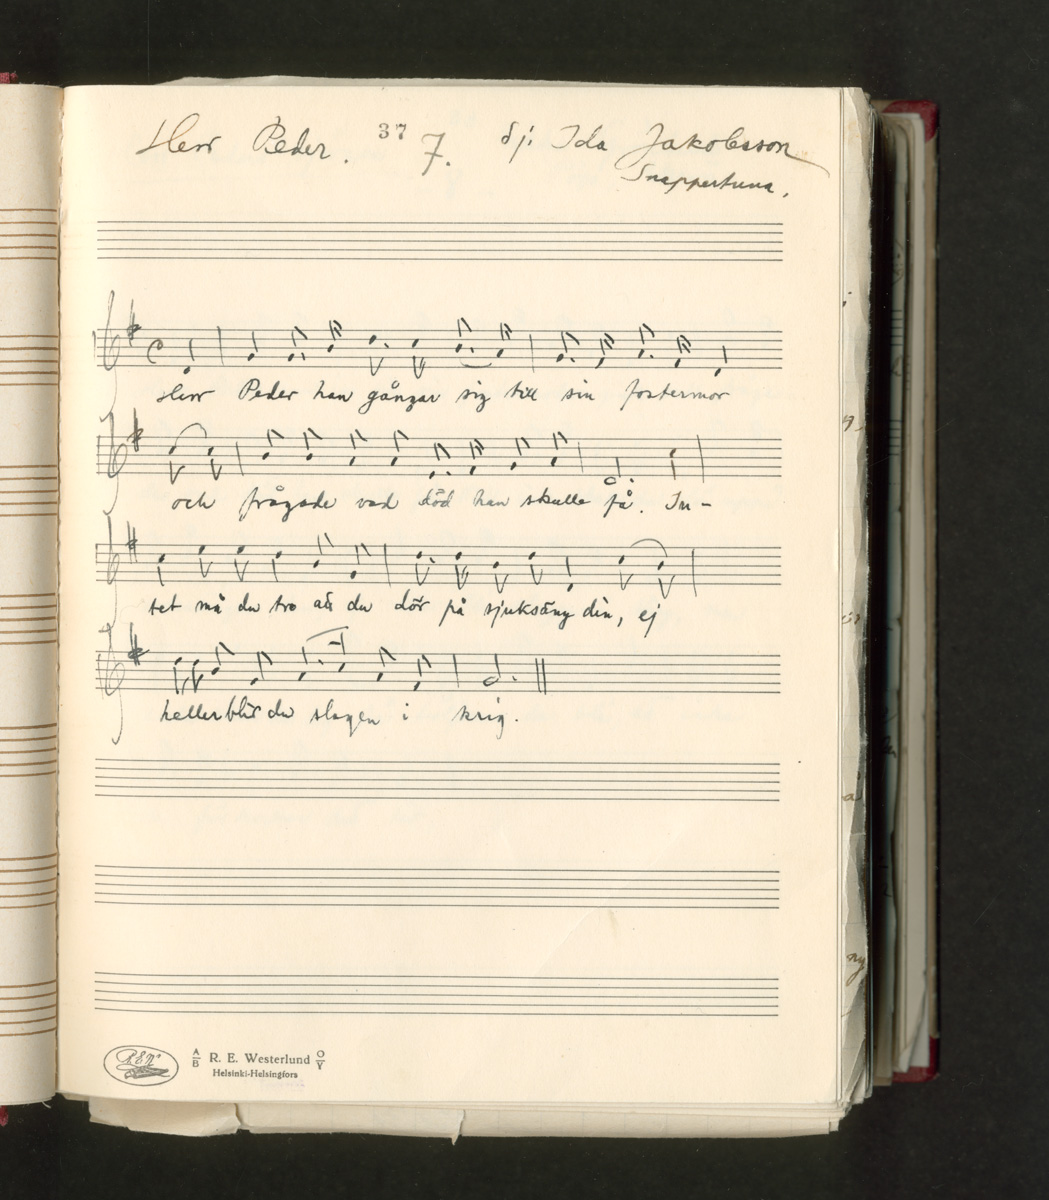 Herr Peder. 37 7. Sj: Ida Jakobsson
Snappertuna.
Herr Peder han gångar sig till sin fostermor
och frågade vad död han skulle få. In-
tet må du tro att du dör på sjuksäng din, ej
heller blir du slagen i krig.
A/B R. E. Westerlund O/Y
Helsinki-Helsingfors